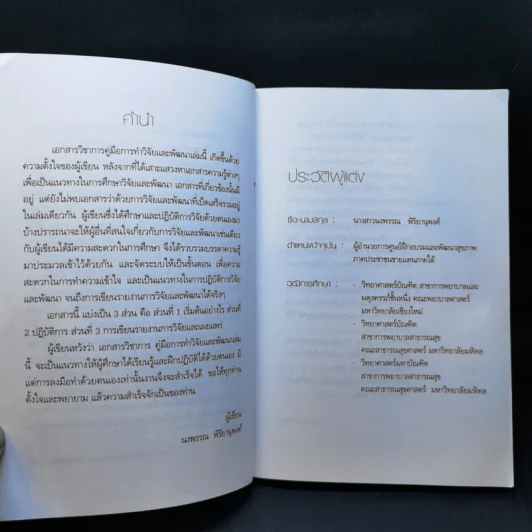 คำนำ
เอกสารวิชาการคู่มือการทำวิจัยและพัฒนาเล่มนี้ เกิดขึ้นด้วย
ความตั้งใจของผู้เขียน หลังจากที่ได้เสาะแสวงหาเอกสารความรู้ต่างๆ
เพื่อเป็นแนวทางในการศึกษาวิจัยและพัฒนา เอกสารที่เกี่ยวข้องนั้นมี
อยู่ แต่ยังไม่พบเอกสารว่าด้วยการวิจัยและพัฒนาที่เบ็ดเสร็จรวมอยู่
ในเล่มเดียวกัน ผู้เขียนซึ่งได้ศึกษาและปฏิบัติการวิจัยด้วยตนเองมา
บ้างปรารถนาจะให้ผู้อื่นที่สนใจเกี่ยวกับการวิจัยและพัฒนาเช่นเดียว
กับผู้เขียนได้มีความสะดวกในการศึกษา จึงได้รวบรวมบรรดาความรู้
มาประมวลเข้าไว้ด้วยกัน และจัดระบบให้เป็นขั้นตอน เพื่อความ
สะดวกในการทำความเข้าใจ และเป็นแนวทางในการปฏิบัติการวิจัย
และพัฒนา จนถึงการเขียนรายงานการวิจัยและพัฒนาได้จริงๆ
เอกสารนี้ แบ่งเป็น 3 ส่วน คือ ส่วนที่ 1 เริ่มต้นอย่างไร ส่วนที่
2 ปฏิบัติการ ส่วนที่ 3 การเขียนรายงานการวิจัยและเผยแพร่
ผู้เขียนหวังว่า เอกสารวิชาการ คู่มือการทำวิจัยและพัฒนาเล่ม
นี้ จะเป็นแนวทางให้ผู้ศึกษาได้เรียนรู้และฝึกปฏิบัติได้ด้วยตนเอง มี
แต่การลงมือทำด้วยตนเองเท่านั้นงานจึงจะสำเร็จได้ ขอให้ทุกท่าน
ตั้งใจและพยายาม แล้วความสำเร็จจักเป็นของท่าน
ผู้เขียน
นงพรรณ พิริยานุพงศ์
ประวัติผู้แต่ง
ชื่อ-นามสกุล : นางสาวนงพรรณ พิริยานุพงศ์
ตำแหน่งปัจจุบัน : ผู้อำนวยการศูนย์ฝึกอบรมและพัฒนาสุขภาพ
ภาคประชาชนชายแดนภาคใต้
วุฒิการศึกษา : - วิทยาศาสตร์บัณฑิต สาขาการพยาบาลและ
ผดุงครรภ์ชั้นหนึ่ง คณะพยาบาลศาสตร์
มหาวิทยาลัยเชียงใหม่
- วิทยาศาสตร์บัณฑิต
สาขาการพยาบาลสาธารณสุข
คณะสาธารณสุขศาสตร์ มหาวิทยาลัยมหิดล
- วิทยาศาสตร์มหาบัณฑิต
สาขาการพยาบาลสาธารณสุข
คณะสาธารณสุขศาสตร์ มหาวิทยาลัยมหิดล